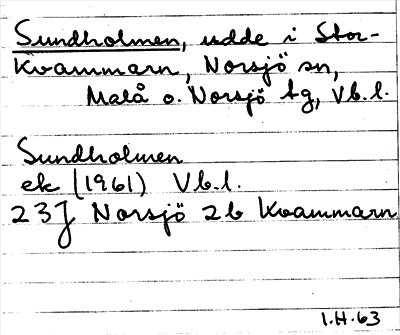 Sundholmen, udde i Stor-
Kvammarn, Norsjö sn,
Malå o. Norsjö tg, Vb.l.
Sundholmen
ek (1961) Vb.l.
23J Norsjö 2b Kvammarn
I.H.63